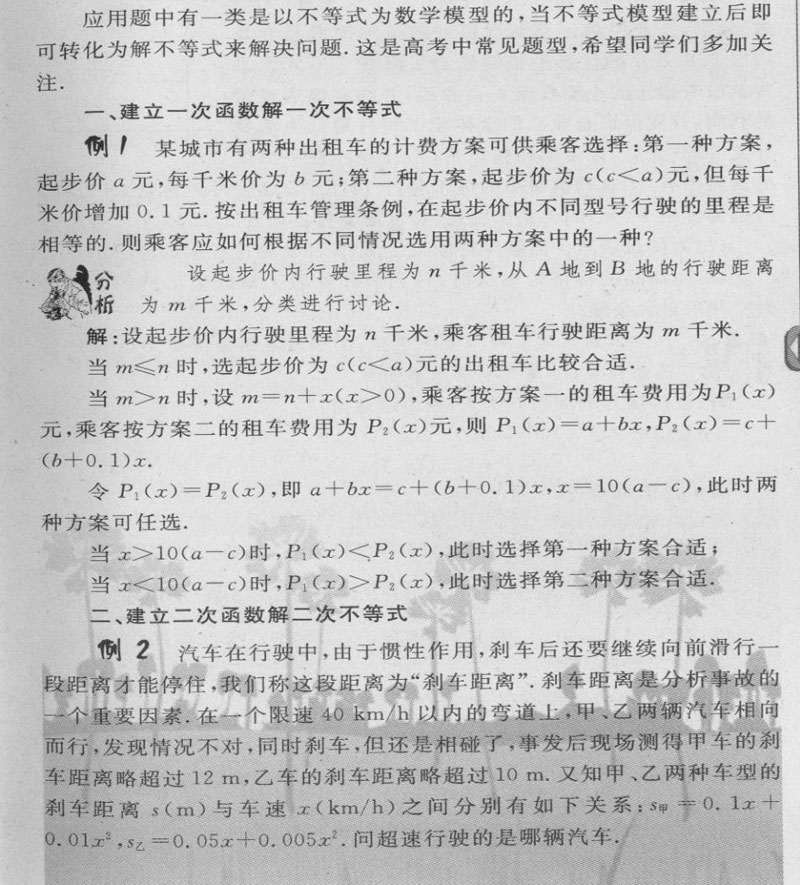 应用题中有一类是以不等式为数学模型的,当不等式模型建立后即
可转化为解不等式来解决问题.这是高考中常见题型,希望同学们多加关
注.
一、建立一次函数解一次不等式
例1 某城市有两种出租车的计费方案可供乘客选择:第一种方案,
起步价 a 元,每千米价为 b 元;第二种方案,起步价为 c(c<a)元,但每千
米价增加 0.1 元.按出租车管理条例,在起步价内不同型号行驶的里程是
相等的.则乘客应如何根据不同情况选用两种方案中的一种?
分析 设起步价内行驶里程为 n 千米,从 A 地到 B 地的行驶距离
为 m 千米,分类进行讨论.
解:设起步价内行驶里程为 n 千米,乘客租车行驶距离为 m 千米.
当 m≤n 时,选起步价为 c(c<a)元的出租车比较合适.
当 m>n 时,设 m=n+x(x>0),乘客按方案一的租车费用为P₁(x)
元,乘客按方案二的租车费用为 P₂(x)元,则 P₁(x)=a+bx,P₂(x)=c+
(b+0.1)x.
令 P₁(x)=P₂(x),即 a+bx=c+(b+0.1)x,x=10(a-c),此时两
种方案可任选.
当 x>10(a-c)时,P₁(x)<P₂(x),此时选择第一种方案合适;
当 x<10(a-c)时,P₁(x)>P₂(x),此时选择第二种方案合适.
二、建立二次函数解二次不等式
例2 汽车在行驶中,由于惯性作用,刹车后还要继续向前滑行一
段距离才能停住,我们称这段距离为“刹车距离”.刹车距离是分析事故的
一个重要因素.在一个限速 40 km/h 以内的弯道上,甲、乙两辆汽车相向
而行,发现情况不对,同时刹车,但还是相碰了,事发后现场测得甲车的刹
车距离略超过 12 m,乙车的刹车距离略超过 10 m.又知甲、乙两种车型的
刹车距离 s(m)与车速 x(km/h)之间分别有如下关系:s甲=0.1x+
0.01x²,s乙=0.05x+0.005x².问超速行驶的是哪辆汽车.